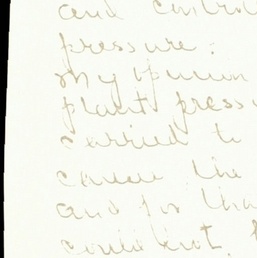 and control
pressure:
My opinion
plant press
carried to
cause the
and for tha
could not